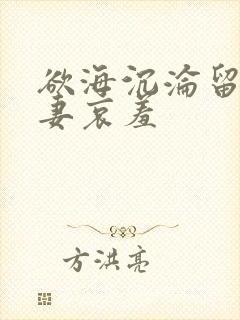 欲海沉沦留
妻哀羞
方洪亮